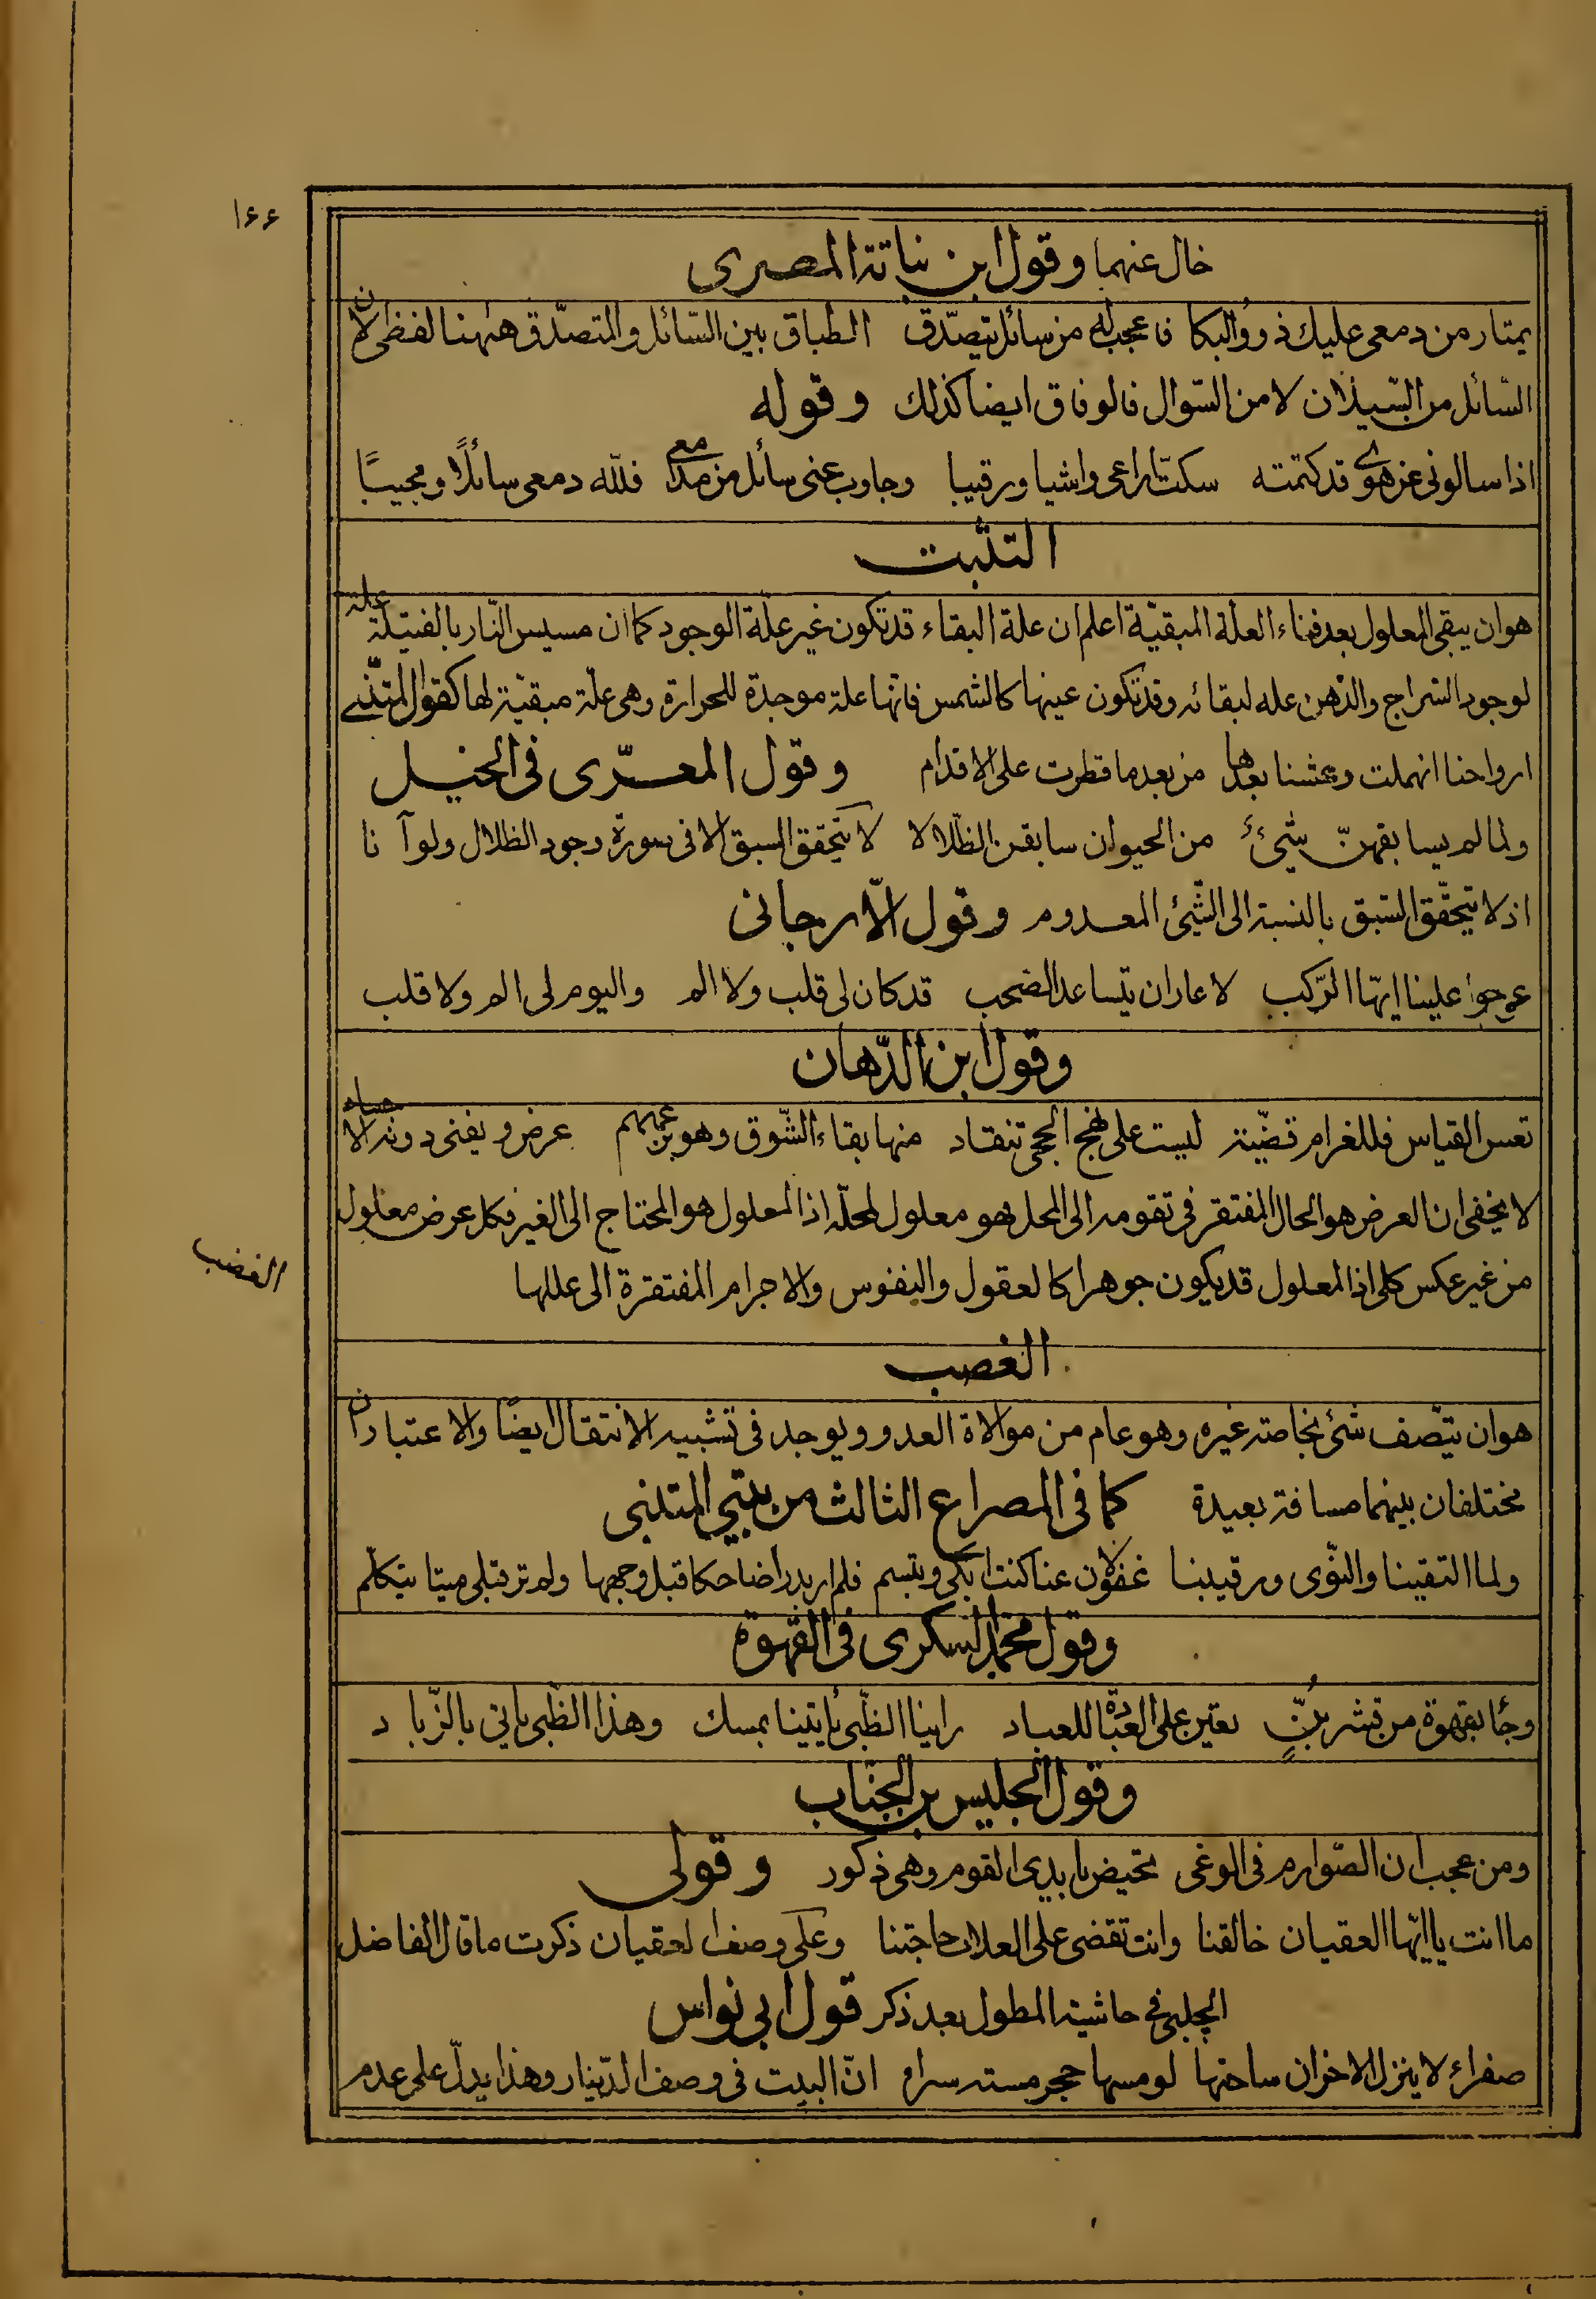 ١٤٤
خال عنهما وقول ابن نباتة المصرى
يمتار من دمعى عليك ذوو البكا فاعجب له من سائل يتصدّق الطباق بين السّائل والتصدّق ههنا لفظى لان
السّائل من السّيلان لا من السّوال فالوفاق ايضا كذلك وقوله
اذا سالونى عن هوى قد كتمته سكتّ اراعى واشيا ورقيبا وجاوب عنى سائل من مدامعى فلله دمعى سائلًا ومجيبًا
التثبت
هو ان يبقى المعلول بعد فناء العلة المبقيّة اعلم ان علة البقاء قد تكون غير علّة الوجود كما ان مسيس النّار بالفتيلة علة
لوجود السّراج والدّهن علة لبقائه وقد تكون عينها كالشمس فانها علة موجدة للحرارة وهى علّة مبقيّة لها كقول المتنّبى
ارواحنا انهملت وعشنا بعدها من بعد ما قطرت على الاقدام وقول المعرّى فى الخيل
ولما لم يسابقهنّ شيئ من الحيوان سابقن الظّلالا لا يتحقق السبق الا فى صورة وجود الظلال ولو آنا
اذ لا يتحقّق السّبق بالنسبة الى الشّيئ المعدوم وقول الّارجانى
عوجوا علينا ايّها الرّكب لا عار ان يتساعد الصّحب قد كان لى قلب ولا الم واليوم لى الم ولا قلب
وقول ابن الدّهان
تعس القياس فللغرام قضّية ليست على نهج الحجى تنقاد منها بقاء الشّوق وهو بزعمهم عرض ويفنى دونه الاجساد
لا يخفى ان العرض هو الحال المفتقر فى تقومه الى المحل فهو معلول لمحلّه اذ المعلول هو المحتاج الى الغير فكل عرض معلول
من غير عكس كلى اذ المعلول قد يكون جوهرا كالعقول والنفوس والاجرام المفتقرة الى عللها
الغضب
الغصب
هو ان يتّصف شئ بخاصة غيره وهو عام من موالاة العدو ويوجد فى تشبيه الانتقال ايضًا والاعتباران
مختلفان بينهما مسافة بعيدة كما فى المصراع الثالث من بيتي المتنبى
ولما التقينا والنّوى ورقيبنا غفولان عنا كنت ابكى وتبسم فلم ار بدرا ضاحكا قبل وجهها ولم تر قبلى ميتا يتكلّم
وقول محمد السكرى فى القهوة
وجأ بقهوة من قشر بُنٍّ تعين على العبادة للعباد راينا الظّبى يأتينا بمسك وهذا الظّبى ياتى بالزّباد
وقول الجليس بن الجنّاب
ومن عجب ان الصّوارم فى الوغى تحيض بايدى القوم وهى ذكور وقولى
ما انت يا ايّها العقيان خالقنا وانت تقضى على العلات حاجتنا وعلى وصف العقيان ذكرت ما قال الفاضل
الچلبى فى حاشية المطول بعد ذكر قول ابى نواس
صفراء لا ينزل الاحزان ساحتها لو مسها حجر مسته سراء انّ البيت فى وصف الدّينار وهذا يدلّ على عدم